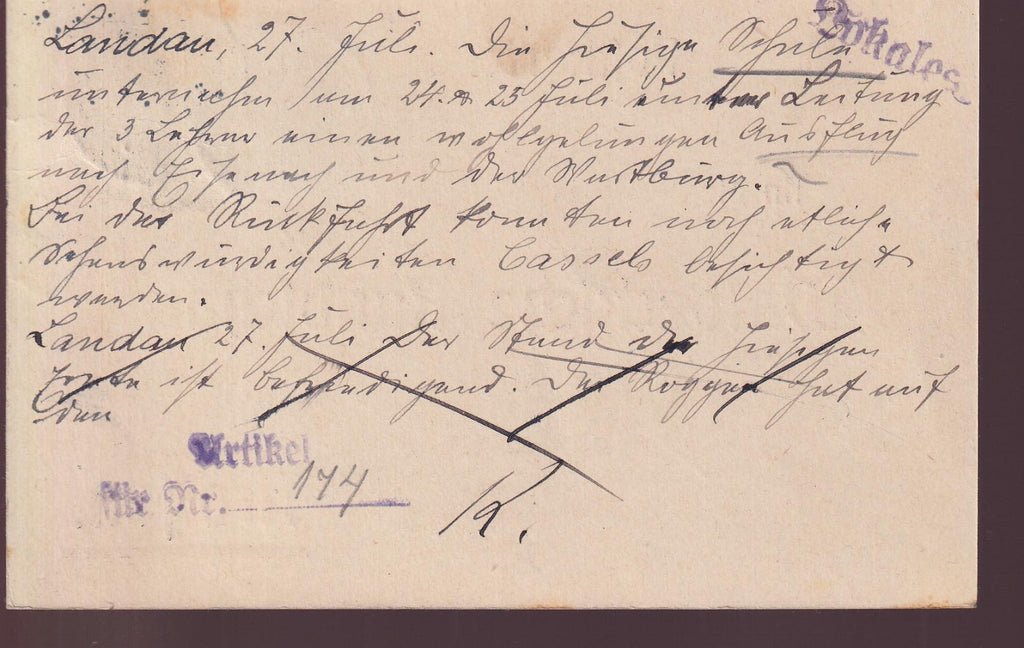 Lokales
Landau, 27. Juli. Die hiesige Schule
unternahm am 24. & 25 Juli unter Leitung
der 3 Lehrer einen wohlgelungen Ausflug
nach Eisenach und der Wartburg.
Bei der Rückfahrt konnten noch etliche
Sehenswürdigkeiten Cassels besichtigt
werden.
Landau 27. Juli Der Stand der hiesigen
Ernte ist befriedigend. Der Roggen hat auf
den
Artikel
für Nr. 174
K.